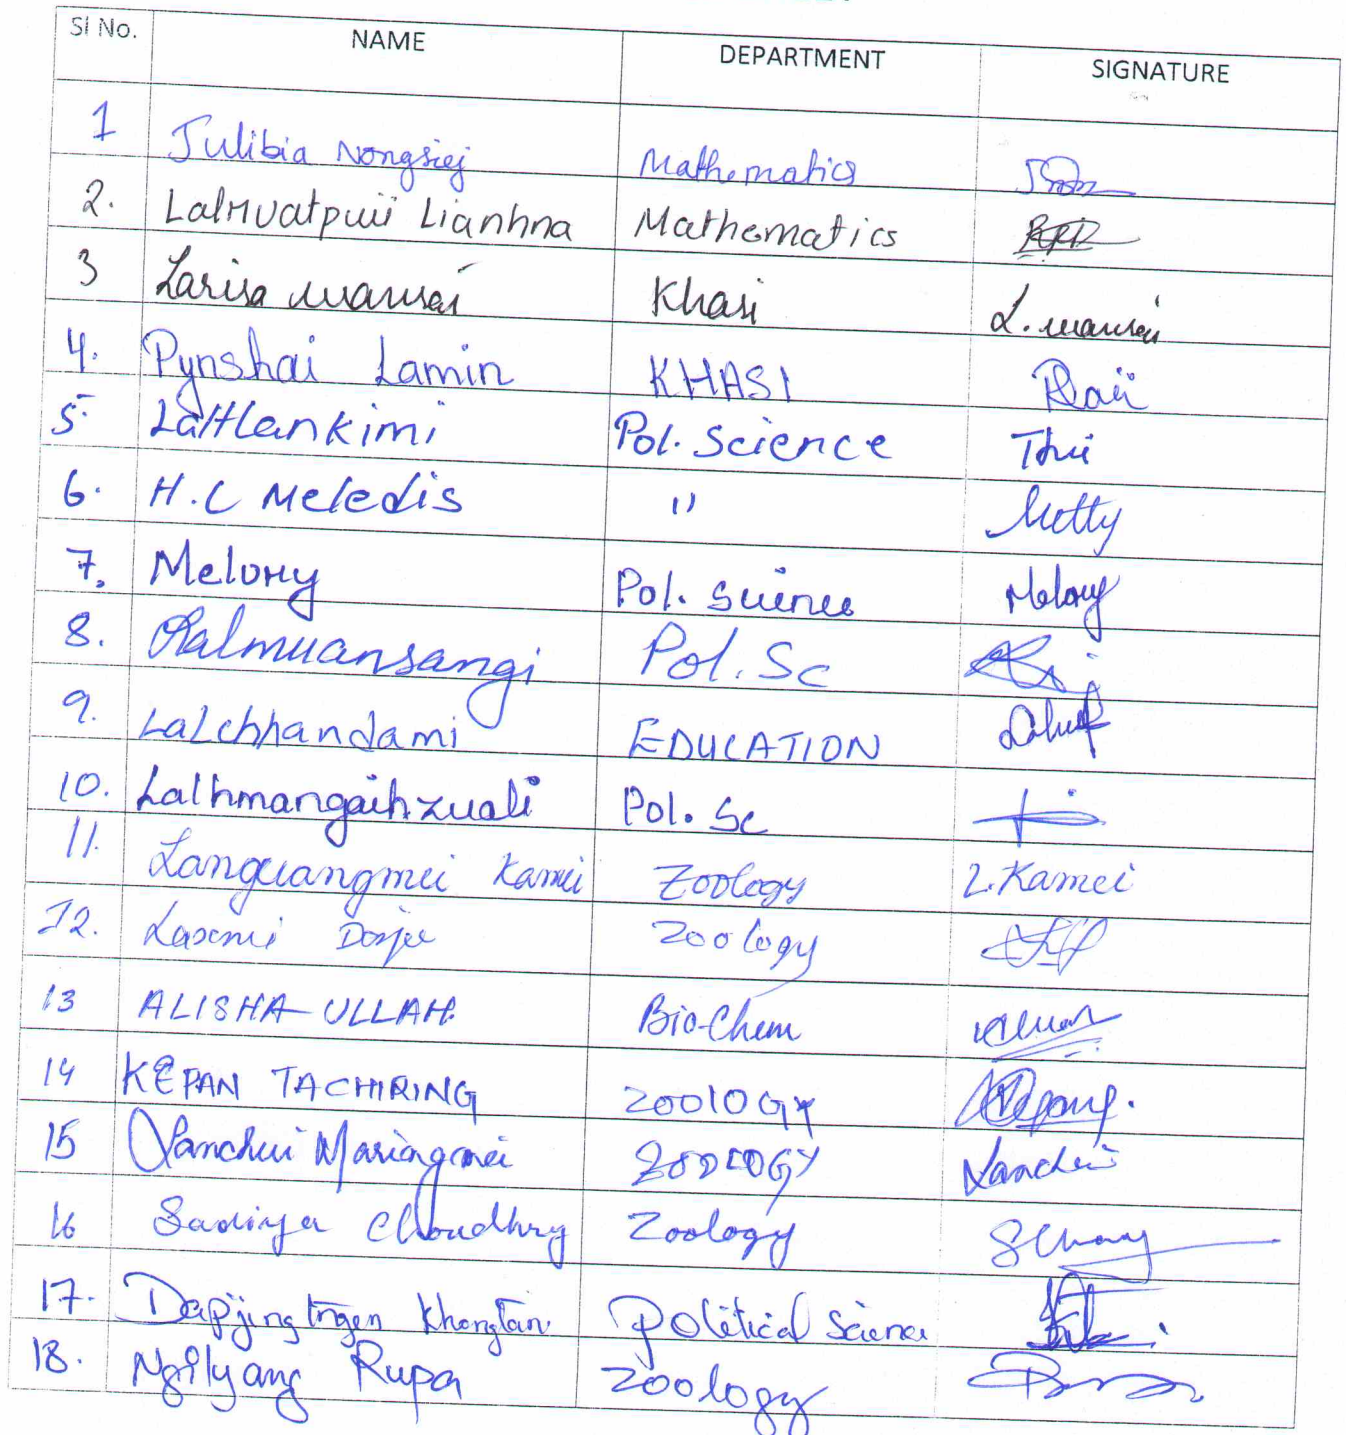 Sl No. NAME DEPARTMENT SIGNATURE
1 Julibia Nongsiej Mathematics
2. Lalmuatpuii Lianhna Mathematics
3 Larisa Khasi L.
4. Pynshai Lamin KHASI
5. Laltlankimi Pol. Science Thii
6. H.C Meledis " Metty
7. Melory Pol. Science Melory
8. Ralmuansangi Pol. Sc
9. Lalchhandami EDUCATION
10. Lalhmangaihzuali Pol. Sc
11. Languangmei Kamei Zoology L. Kamei
12. Laxmi Dorjee Zoology
13 ALISHA ULLAH Bio-Chem
14 KEPAN TACHIRING ZOOlOGY
15 Lanchui Maringmei ZOOLOGY Lanchui
16 Sadiya Choudhry Zoology
17. Political Science
18. Ngilyang Rupa Zoology